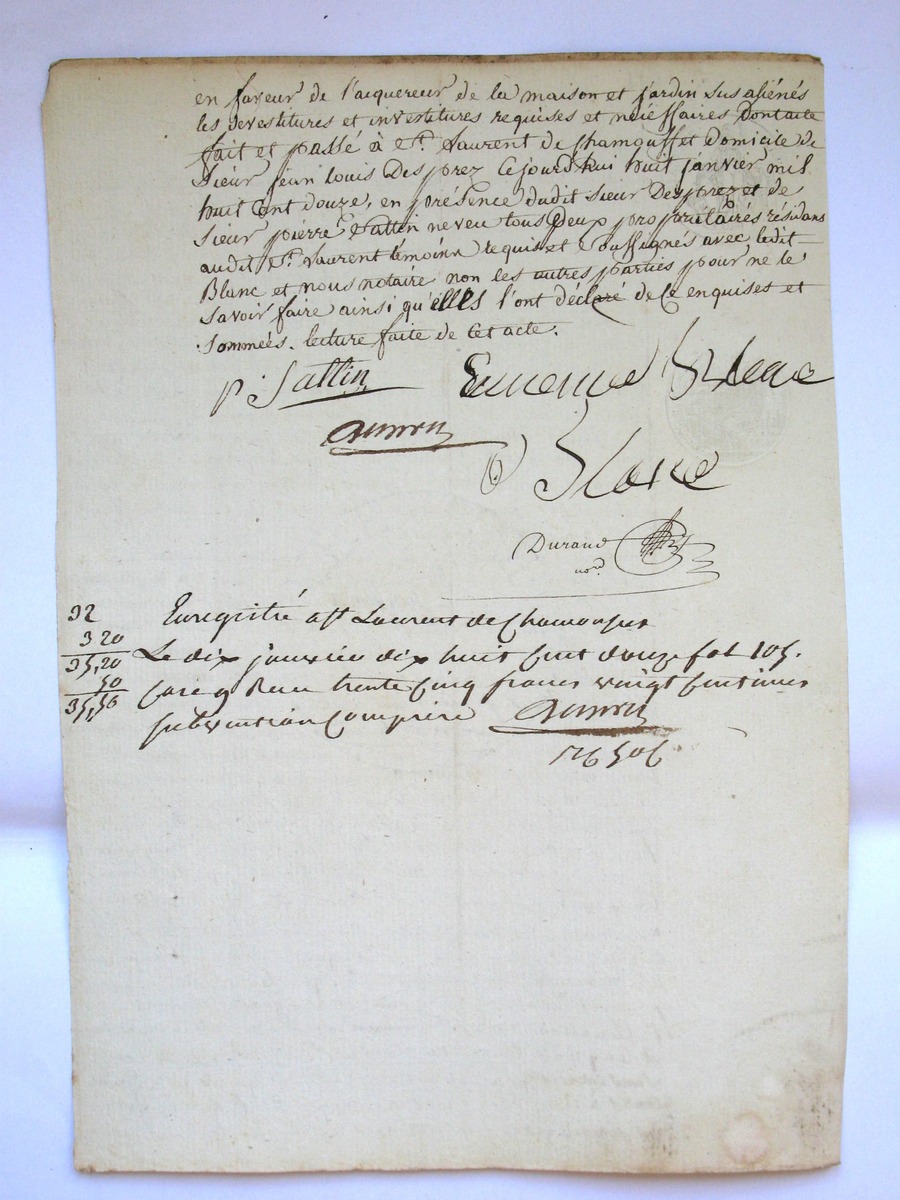 en faveur de l'acquereur de la maison et jardin sus aliénés
les devestitures et investitures requises et nécéssaires Dont acte
fait et passé à St. Laurent de Chamousset Domicile de
Sieur jean Louis Desprez Cejourd'hui huit janvier mil
huit Cent douze, en présence dudit Sieur Desprez et de
Sieur pierre neveu tous Deux propriétairés résidans
audit St. Laurent témoins requis et Soussignés avec ledit
Blanc et nous notaire non les autres parties pour ne le
Savoir faire ainsi qu'elles l'ont déclaré de Ce enquises et
Sommées. lecture faite de Cet acte.
p. 
Blanc
Durand
nore.
32
3 20
35,20
50
35,50
Enregistré a St Laurent de Chamousset
Le dix janvier dix huit Cent douze fol 105.
Case 9 Reçu trente Cinq francs vingt Centimes
subvention Comprise